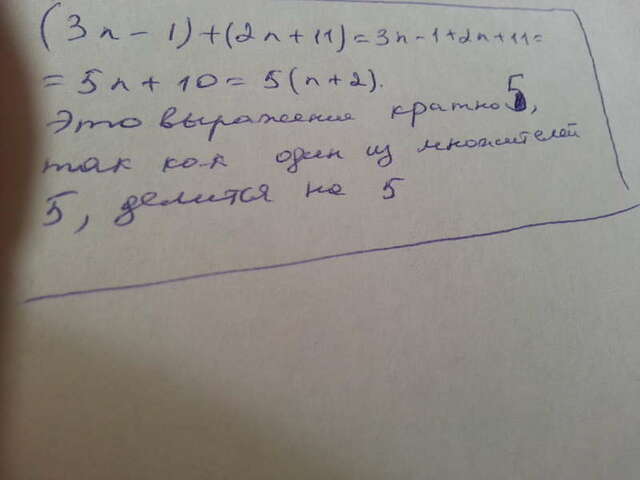 (3n-1)+(2n+11)=3n-1+2n+11=
=5n+10=5(n+2).
Это выражение кратно 5,
так как один из множителей
5, делится на 5